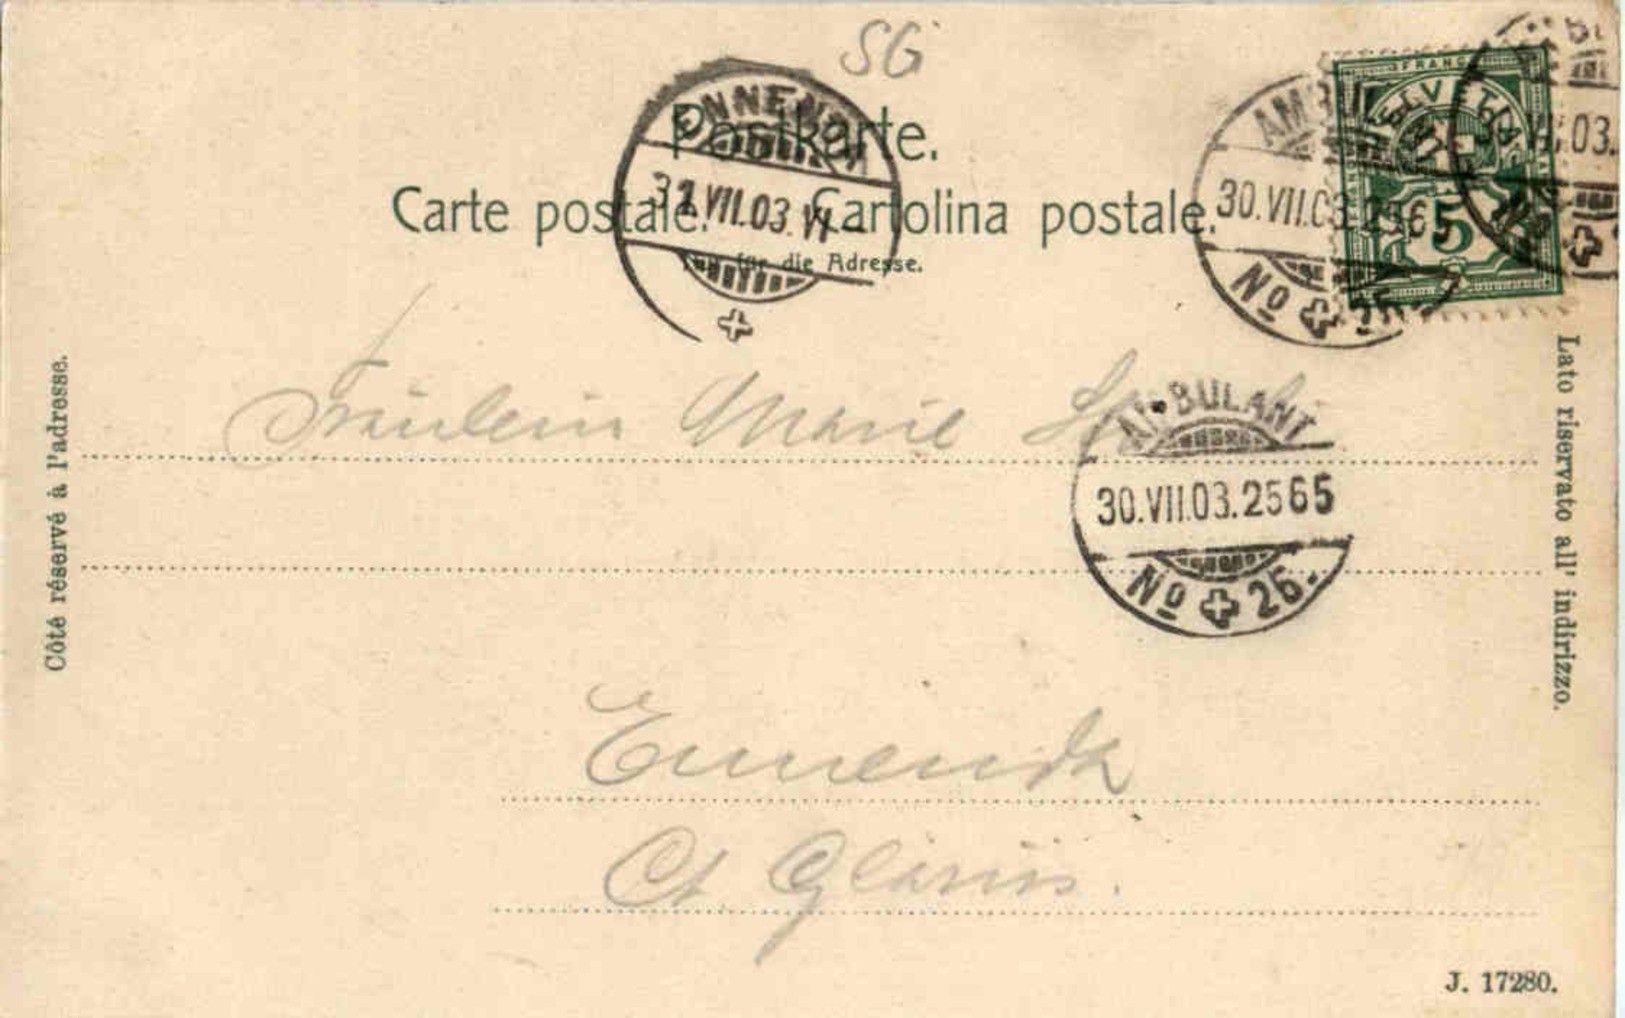 SG
Postkarte.
Carte postale. Cartolina postale.
Nur für die Adresse.
ENNENDA
31.VII.03.VI
AMBULANT
30.VII.03.2565
No 26
FRANCO
HELVETIA
5
VII.03.
No
Côté réservé à l'adresse.
Lato riservato all' indirizzo.
Fräulein Marie
AMBULANT
30.VII.03.2565
No 26.
Ennenda
Ct Glarus.
J. 17280.